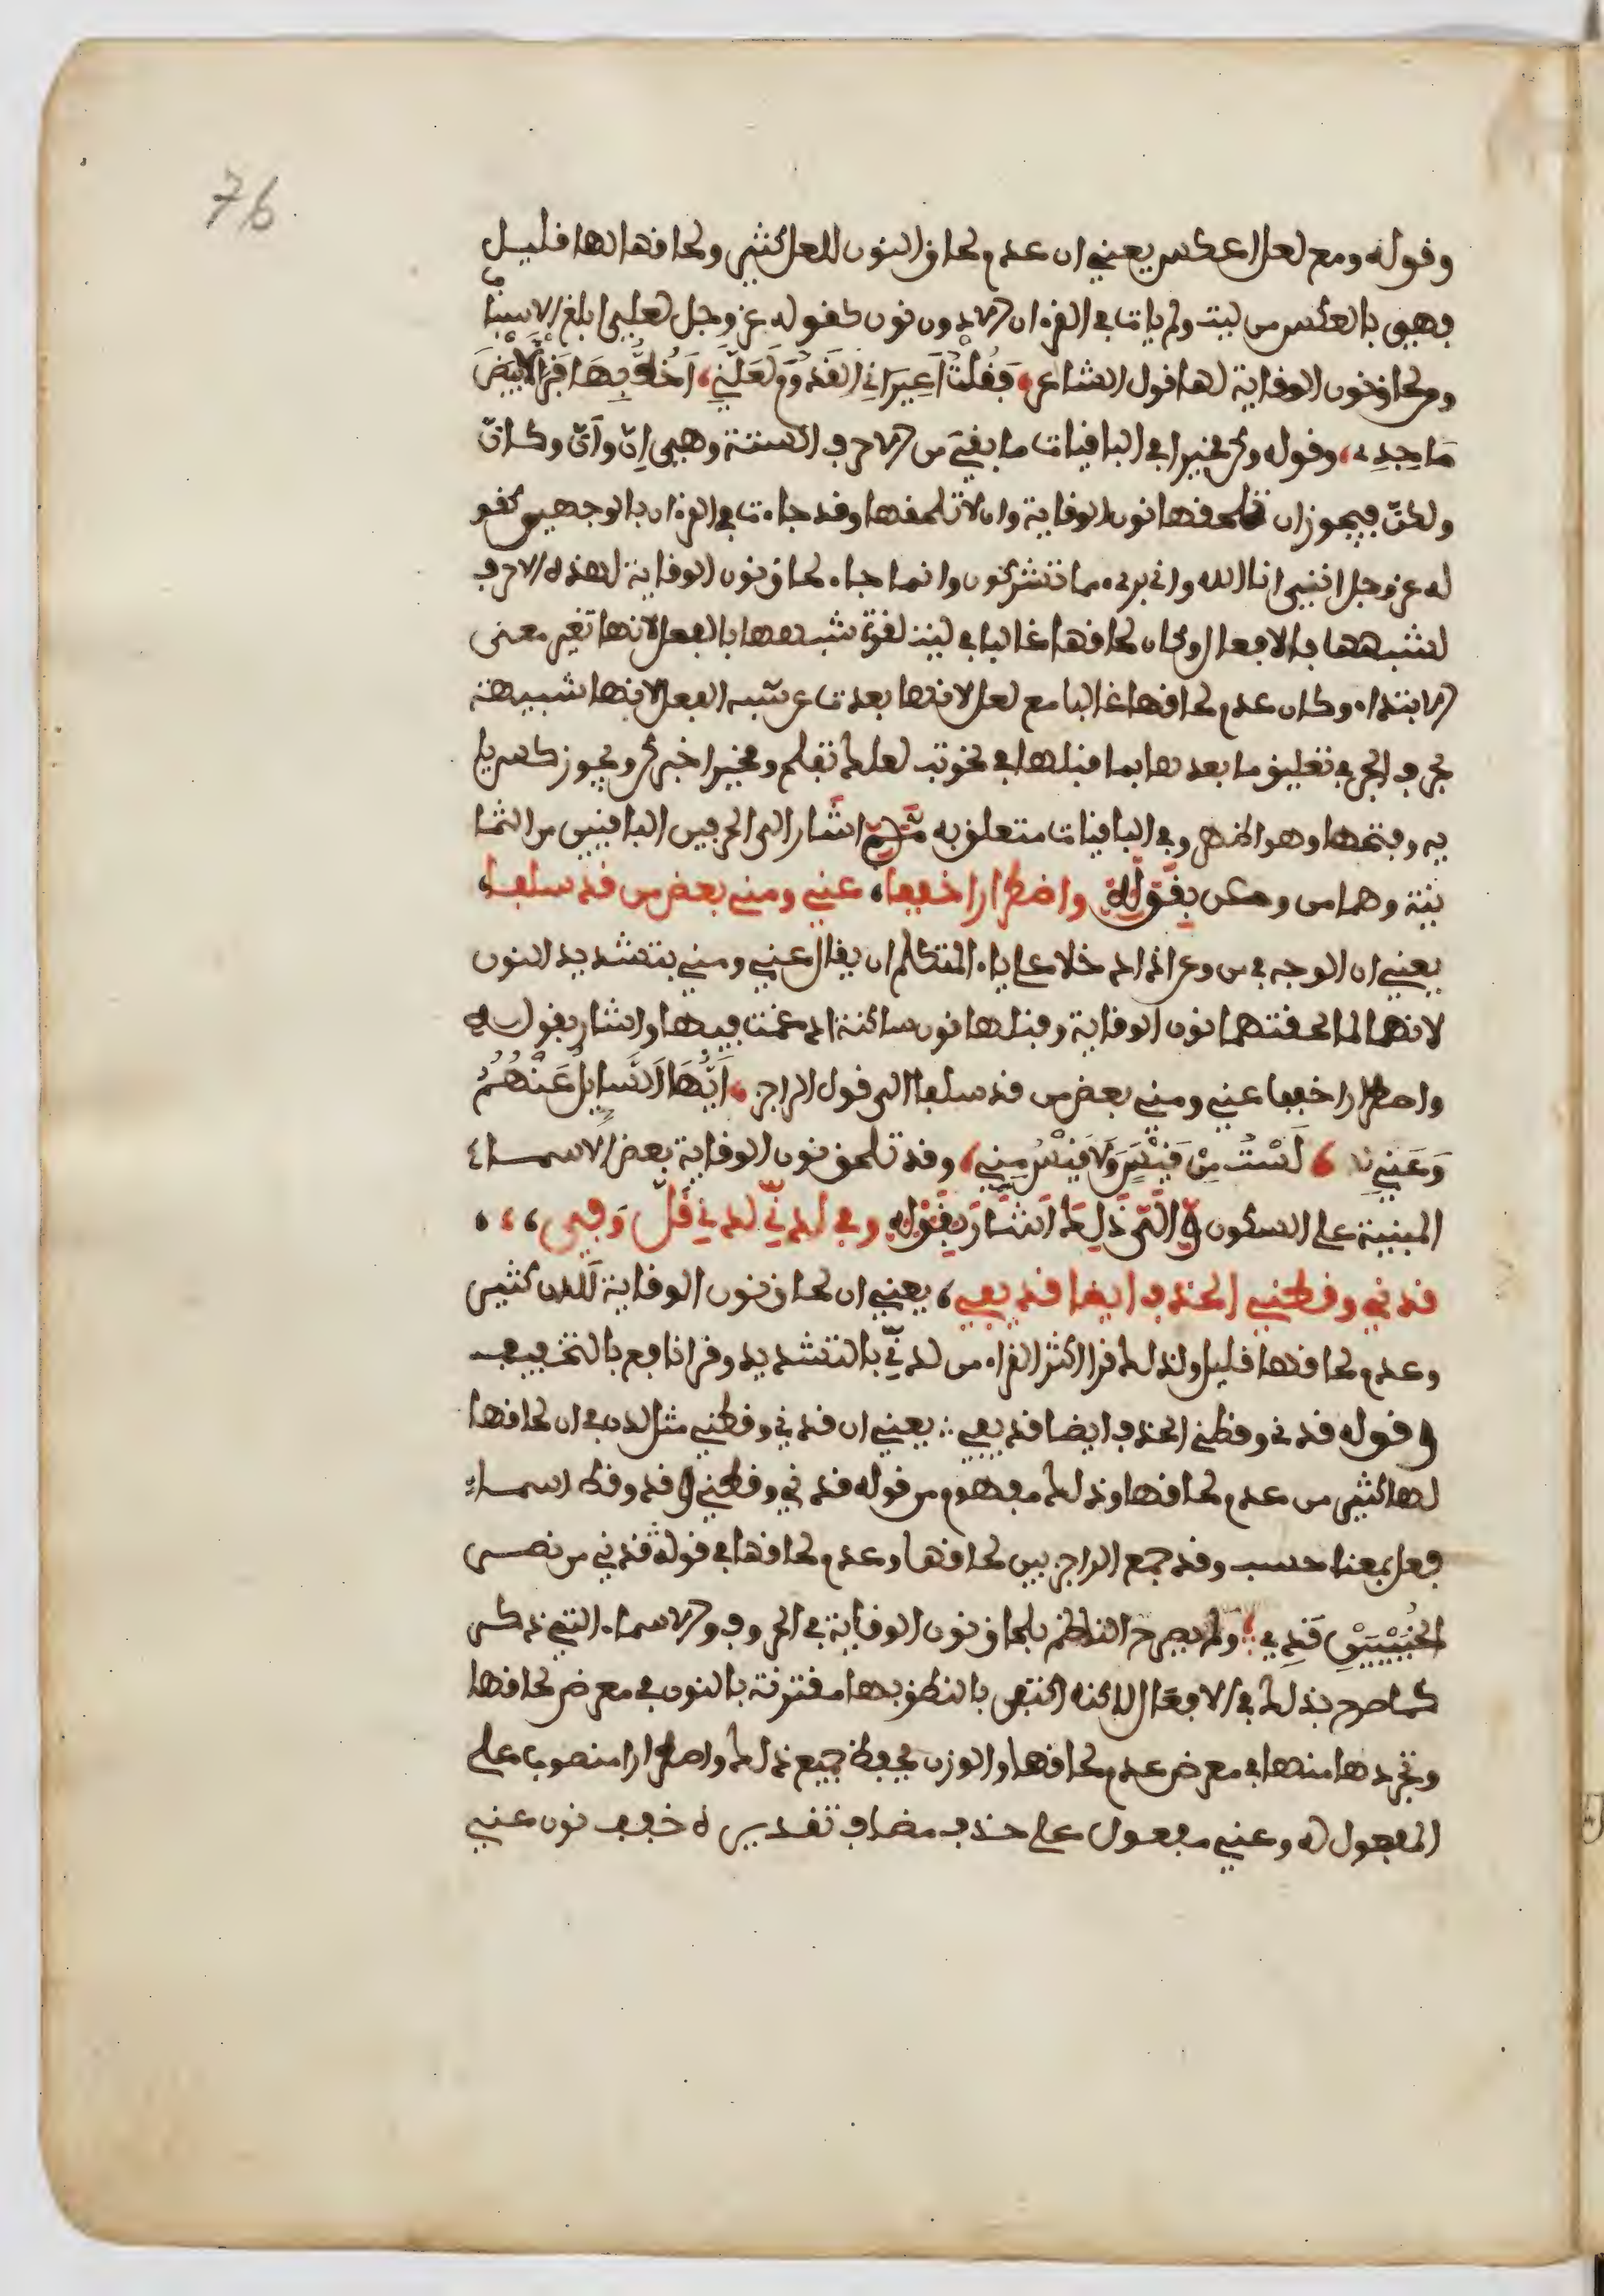 76
وقوله ومع لعل اعكس يعني ان عدم لحاق النون للعل كثير ولحاقها لها قليل
فهي بالعكس من ليت ولم يات في القرءان الا دون نون كقوله عز وجل لعلي ابلغ الاسباب
ومن لحاق نون الوقاية لها قول الشاعر، فَقُلْتُ أَعِيرَانِي القَدُومَ لَعَلَّنِي، أَخُطُّ بِهَا قَبْرًا لِأَبْيَضَ
مَاجِدِ، وقوله وكن مخيرا في الباقيات ما بقي من الاحرف الستة وهي إنّ وأنّ وكأنّ
ولكنّ فيجوز ان تلحقها نون الوقاية وان لا تلحقها وقد جاءت في القرءان بالوجهين كقو
له عز وجل انني انا الله واني برىء مما تشركون وانما جاء لحاق نون الوقاية لهذه الاحرف
لشبهها بالافعال وكان لحاقها غالبا في ليت لقوة شبهها بالفعل لانها تغير معنى
الابتداء وكان عدم لحاقها غالبا مع لعل لانها بعدت عن شبه الفعل لانها شبيهة
بحرف الجر في تعليق ما بعدها بما قبلها في نحو تب لعلك تفلح ومخيرا خبر كن ويجوز كسر يا
يه وفتحها وهو اظهر وفي الباقيات متعلق به ثمّ اشار الى الحرفين الباقيين من الثما
نية وهما من وعن بقوله واضطرارا خففا، عني ومني بعض من قد سلفا،
يعني ان الوجه في من وعن اذا دخلا على ياء المتكلم ان يقال عنّي ومنّي بتشديد النون
لانهما لما لحقتهما نون الوقاية وقبلها نون ساكنة ادغمت فيها واشار بقوله
واضطرارا خففا عني ومني بعض من قد سلفا الى قول الراجز، أَيُّهَا السَّايِلُ عَنْهُمُ
وَعَنِي، لَسْتُ مِنْ قَيْسٍ وَلَا قَيْسُ مِنِي، وقد تلحق نون الوقاية بعض الاسماء
المبنية على السكون والى ذلك اشار بقوله وفي لدنّي لدني قلّ وفي،،،
قدني وقطني الحذف ايضا قد يفي، يعني ان لحاق نون الوقاية للدن كثير
وعدم لحاقها قليل ولذلك قرا اكثر القراء من لدنّي بالتشديد وقرا نافع بالتخفيف
وقوله قدني وقطني الحذف ايضا قد يفي ∴ يعني ان قدني وقطني مثل لدن في ان لحاقها
لها كثير من عدم لحاقها وذلك مفهوم من قوله قدني وقطني وقد وقط اسماء
فعل بمعنا حسب وقد جمع الراجز بين لحاقها وعدم لحاقها في قوله قدني من نصر
الخُبَيْبَيْنِ قَدِي، ولم يصرح الناظم بلحاق نون الوقاية في الحروف والاسماء التي ذكر
كما صرح بذلك في الافعال لاكنه اكتفى بالنطق بها مقترنة بالنون في معرض لحاقها
وتجردها منها في معرض عدم لحاقها والوزن يحفظ جميع ذلك واضطرارا منصوب على
المفعول له وعني مفعول على حذف مضاف تقديره خفف نون عني